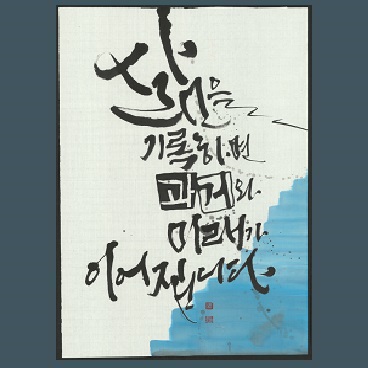 삶을
기록하면
과거와
미래가
이어집니다